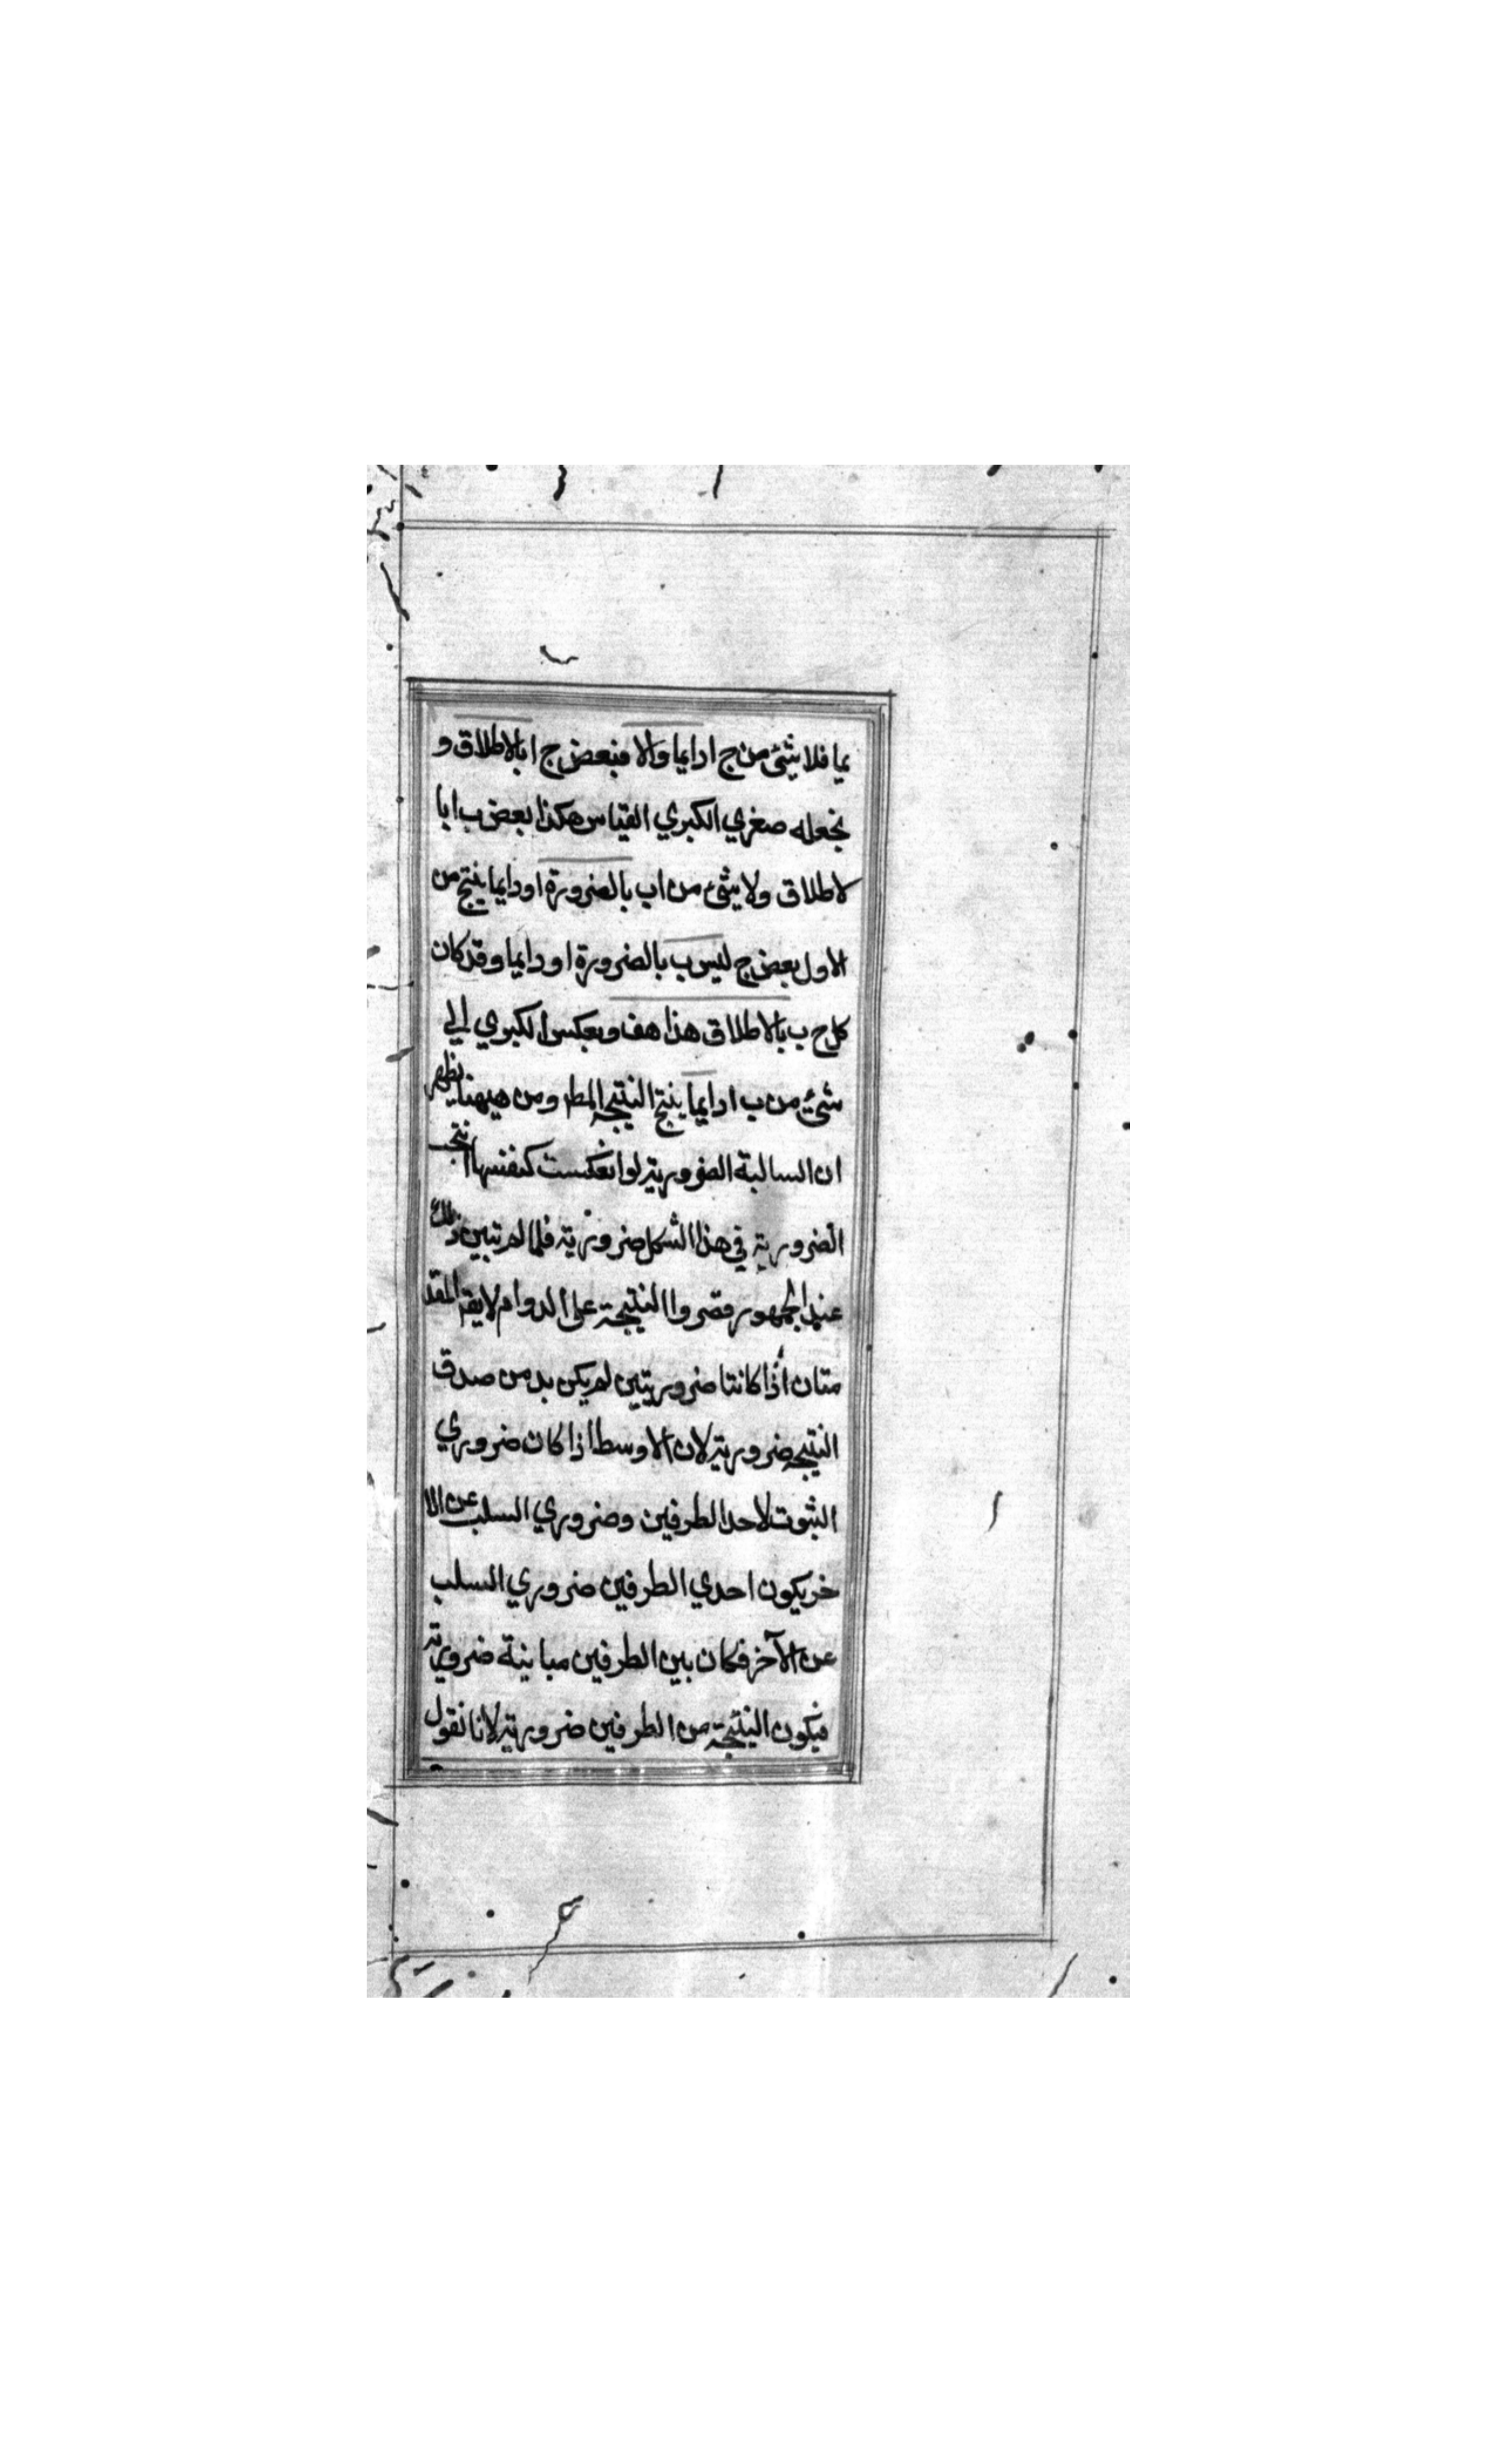 يما فلا شئ من ج ا دايما والا فبعض ج ا بالاطلاق و
نجعله صغري الكبري القياس هكذا بعض ب ا با
لاطلاق ولا شئ من اب بالضرورة او دايما ينتج من
الاول بعض ج ليس ب بالضرورة او دايما وقد كان
كل ج ب بالاطلاق هذا هف وبعكس الكبري الي
شئ من ب ا دايما ينتج النتيجة المط ومن هيهنا يظهر
ان السالبة الضرورية لو انعكست كنفسها انتجت
الضرورية في هذا الشكل ضرورية فلما لم تبين ذلك
عند الجمهور قصروا النتيجة علي الدوام لا يقه المقد
متان اذا كانتا ضروريتين لم يكن بد من صدق
النتيجة ضرورية لان الاوسط اذا كان ضروري
الثبوت لاحد الطرفين وضروري السلب عن الا
خر يكون احدي الطرفين ضروري السلب
عن الآخر فكان بين الطرفين مباينة ضرورية
فيكون النتيجة من الطرفين ضرورية لانا نقول